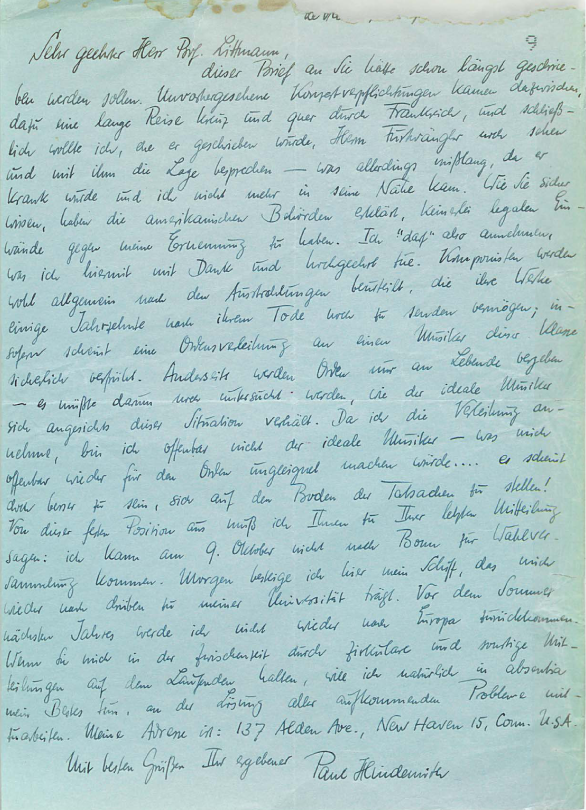 9
Sehr geehrter Herr Prof. Littmann,
dieser Brief an Sie hätte schon längst geschrie-
ben werden sollen. Unvorhergesehene Konzertverpflichtungen kamen dazwischen,
dazu eine lange Reise kreuz und quer durch Frankreich, und schließ-
lich wollte ich, ehe er geschrieben wurde, Herrn Furtwängler noch sehen
und mit ihm die Lage besprechen – was allerdings mißlang, da er
krank wurde und ich nicht mehr in seine Nähe kam. Wie Sie sicher
wissen, haben die amerikanischen Behörden erklärt, keinerlei legalen Ein-
wände gegen meine Ernennung zu haben. Ich "darf" also annehmen,
was ich hiermit mit Dank und hochgeehrt tue. Komponisten werden
wohl allgemein nach den Ausstrahlungen beurteilt, die ihre Werke
einige Jahrzehnte nach ihrem Tode noch zu senden vermögen; in-
sofern scheint eine Ordensverleihung an einen Musiker dieser Klasse
sicherlich verfrüht. Anderseits werden Orden nur an Lebende vergeben
– es müßte darum noch untersucht werden, wie der ideale Musiker
sich angesichts dieser Situation verhält. Da ich die Verleihung an-
nehme, bin ich offenbar nicht der ideale Musiker – was mich
offenbar wieder für den Orden ungeeignet machen würde.... es scheint
doch besser zu sein, sich auf den Boden der Tatsachen zu stellen!
Von dieser festen Position aus muß ich Ihnen zu Ihrer letzten Mitteilung
sagen: ich kann am 9. Oktober nicht nach Bonn zur Wahlver-
sammlung kommen. Morgen besteige ich hier mein Schiff, das mich
wieder nach drüben zu meiner Universität trägt. Vor dem Sommer
nächsten Jahres werde ich nicht wieder nach Europa zurückkommen.
Wenn Sie mich in der Zwischenzeit durch Zirkulare und sonstige Mit-
teilungen auf dem Laufenden halten, will ich natürlich in absentia
mein Bestes tun, an der Lösung aller aufkommenden Probleme mit-
zuarbeiten. Meine Adresse ist: 137 Alden Ave., New Haven 15, Conn. U.S.A.
Mit besten Grüßen Ihr ergebener Paul Hindemith